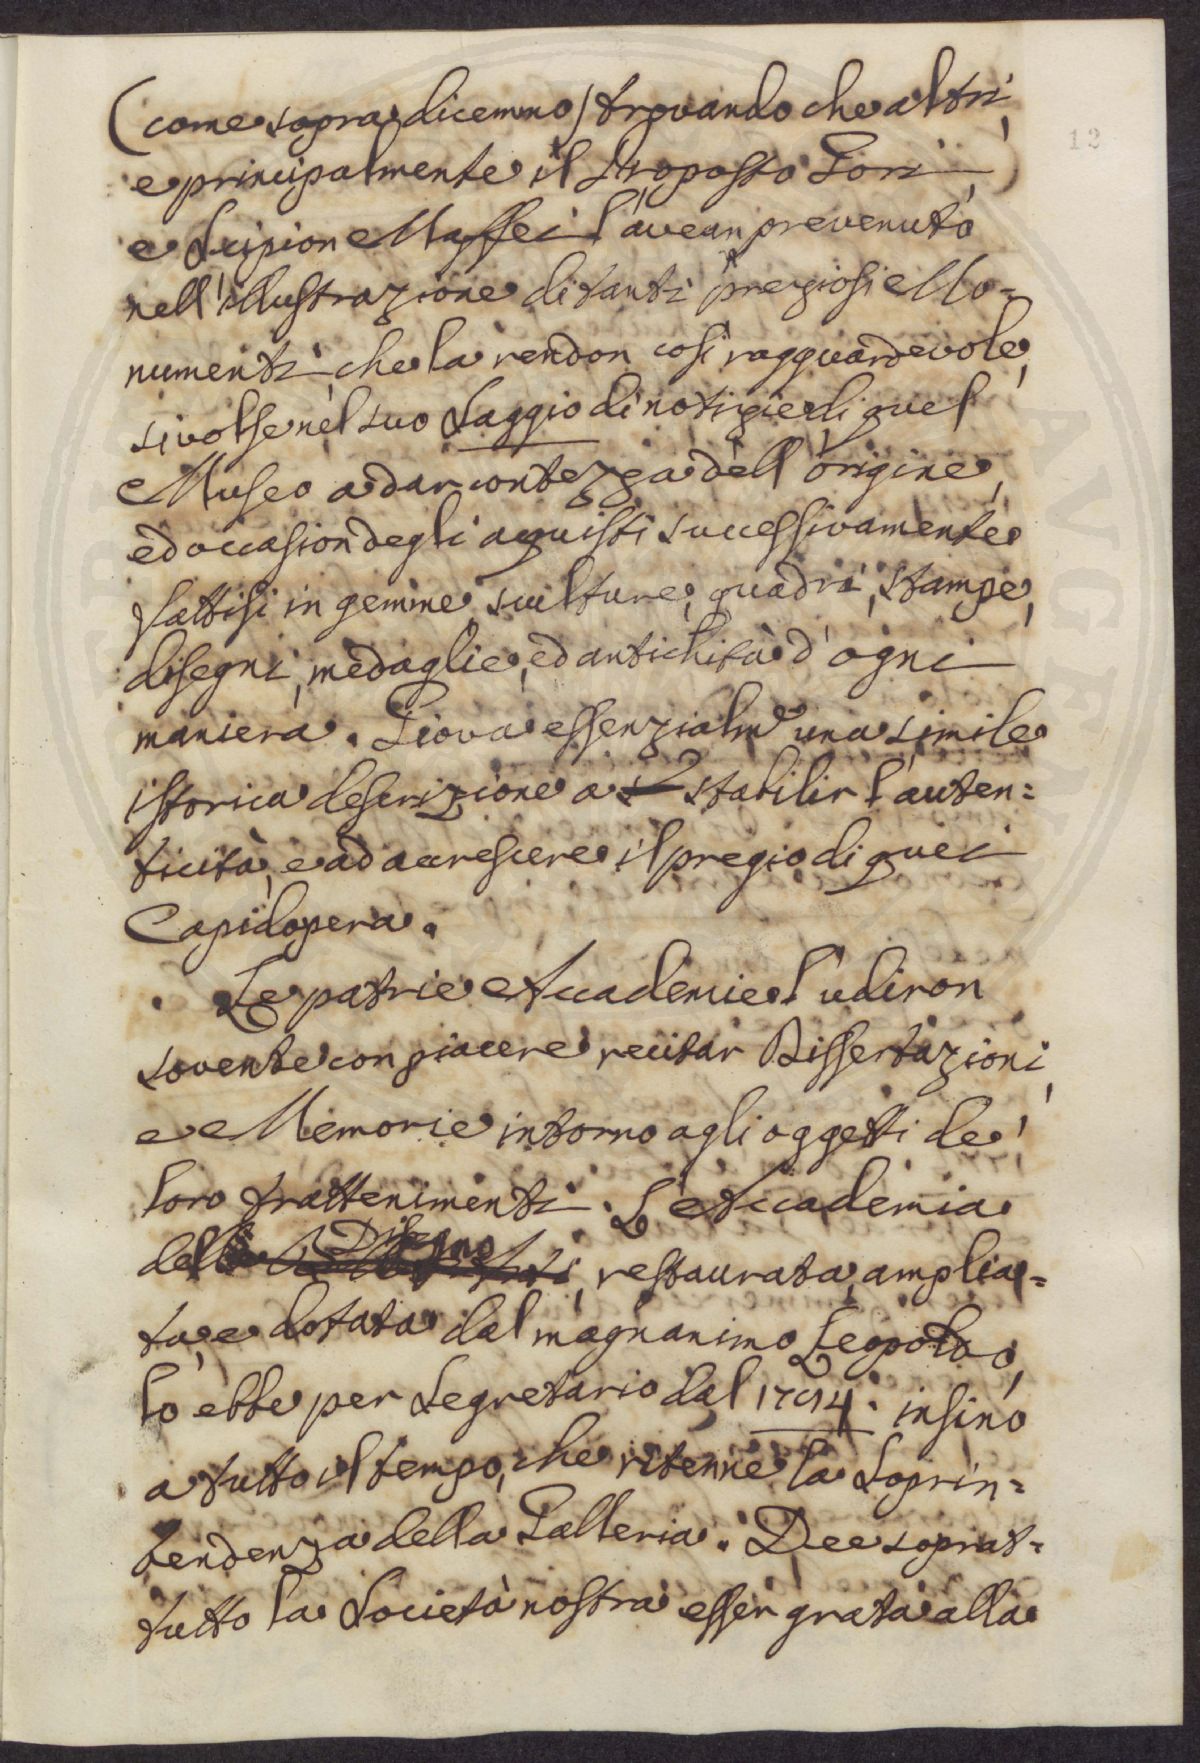 (come sopra dicemmo) trovando che altri,
12
e principalmente il Proposto Gori
e Scipion Maffei l'avean prevenuto
nell'illustrazione di tanti preziosi Mo=
numenti, che la rendon così ragguardevole,
si volse nel suo Saggio di notizie di quel
Museo a dar contezza dell'origine,
ed occasion degli aquisti successivamente
fattisi in gemme, sculture, quadri, stampe,
disegni, medaglie, ed antichità d'ogni
maniera. Giova essenzialm.e una simile
istorica descrizione a stabilir l'auten=
ticità, e ad accrescere il pregio di quei
Capidopera.
Le patrie Accademie l'udiron
sovente con piacere recitar Dissertazioni,
e Memorie intorno agli oggetti de'
loro trattenimenti. L'Accademia
del Disegno, restaurata, amplia=
ta, e dotata dal magnanimo Leopoldo,
lo ebbe per Segretario dal 1794. insino
a tutto il tempo, che ritenne la Soprin=
tendenza della Galleria. Dee soprat=
tutto la Società nostra esser grata alla